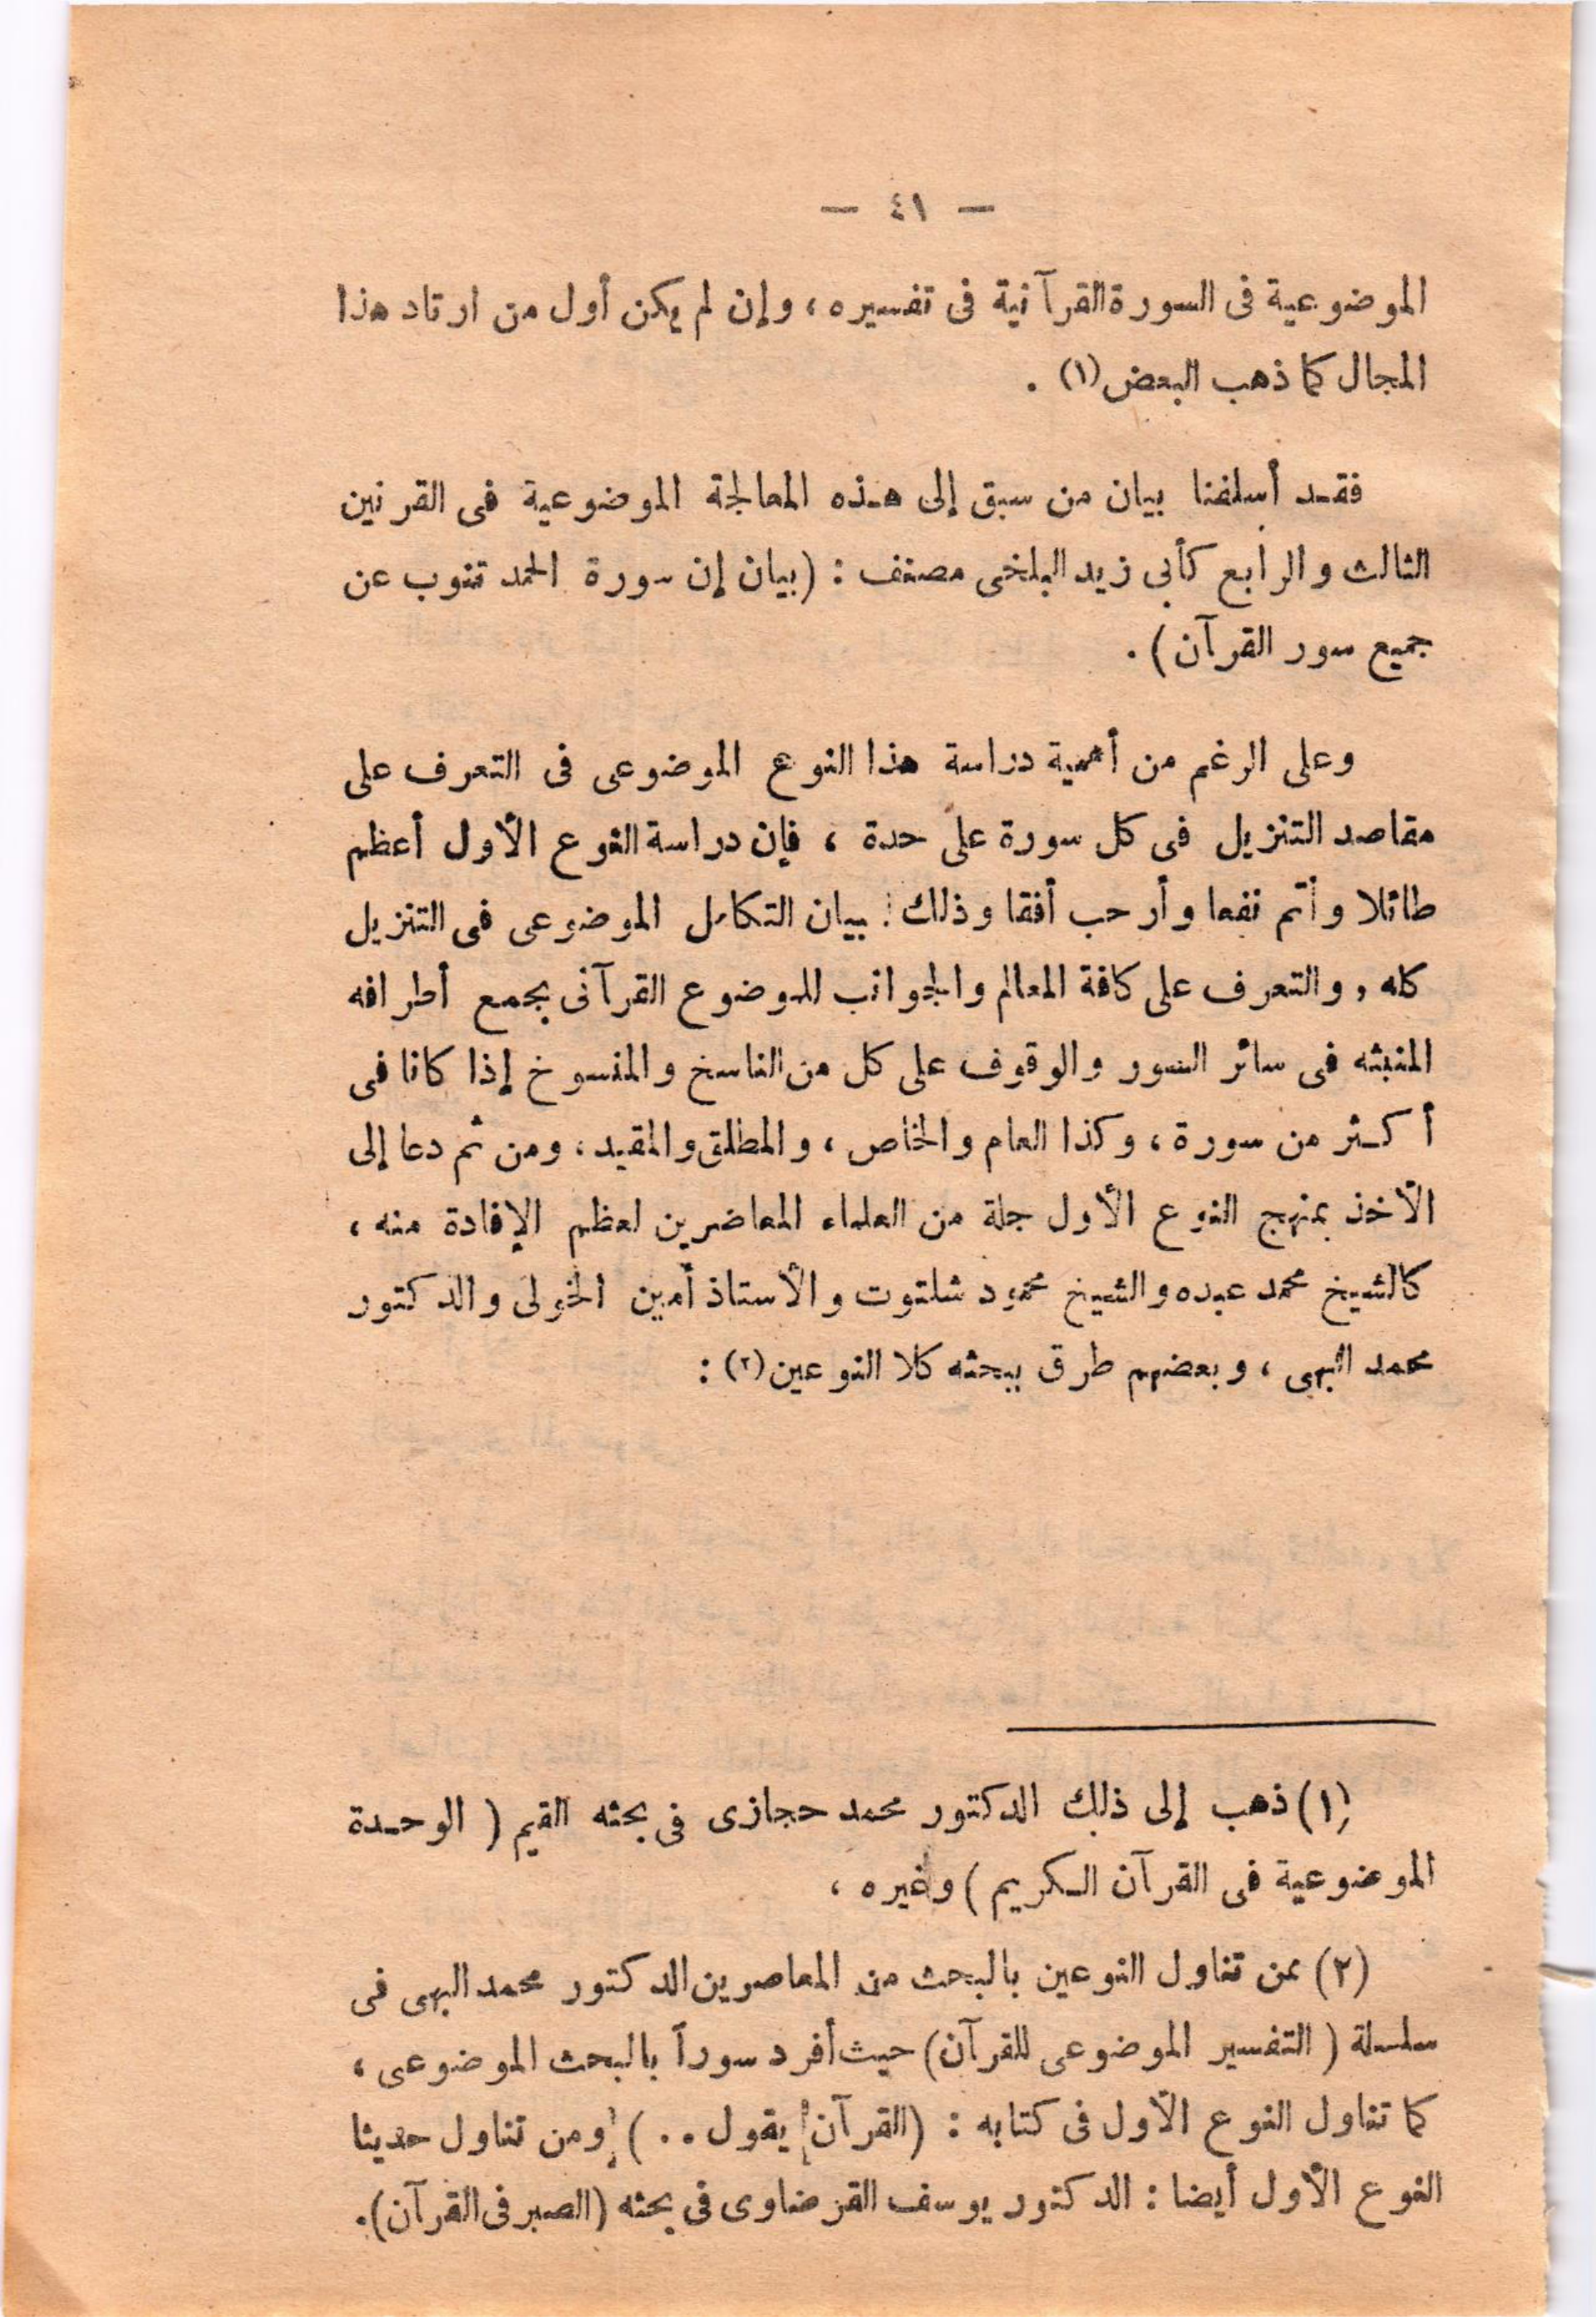 — ٤١ —
الموضوعية فى السورة القرآنية فى تفسيره ، وإن لم يكن أول من ارتاد هذا
المجال كما ذهب البعض (١) .
فقد أسلفنا بيان من سبق إلى هذه المعالجة الموضوعية فى القرنين
الثالث والرابع كأبى زيد البلخى مصنف : (بيان إن سورة الحمد تنوب عن
جميع سور القرآن) .
وعلى الرغم من أهمية دراسة هذا النوع الموضوعى فى التعرف على
مقاصد التنزيل فى كل سورة على حدة ، فإن دراسة النوع الأول أعظم
طائلا وأتم نفعا وأرحب أفقا وذلك : ببيان التكامل الموضوعى فى التنزيل
كله ، والتعرف على كافة المعالم والجوانب للموضوع القرآنى بجمع أطرافه
المنبثه فى سائر السور والوقوف على كل من الناسخ والمنسوخ إذا كانا فى
أكثر من سورة ، وكذا العام والخاص ، والمطلق والمقيد ، ومن ثم دعا إلى
الأخذ بمنهج النوع الأول جلة من العلماء المعاضرين لعظم الإفادة منه ،
كالشيخ محمد عبده والشيخ محمود شلتوت والأستاذ أمين الخولى والدكتور
محمد البهى ، وبعضهم طرق ببحثه كلا النوعين (٢) :
(١) ذهب إلى ذلك الدكتور محمد حجازى فى بحثه القيم ( الوحدة
الموضوعية فى القرآن الكريم ) وغيره ،
(٢) ممن تناول النوعين بالبحث من المعاصرين الدكتور محمد البهى فى
سلسلة ( التفسير الموضوعى للقرآن) حيث أفرد سوراً بالبحث الموضوعى ،
كما تناول النوع الأول فى كتابه : (القرآن يقول . . ) ومن تناول حديثا
النوع الأول أيضا : الدكتور يوسف القرضاوى فى بحثه (الصبر فى القرآن).